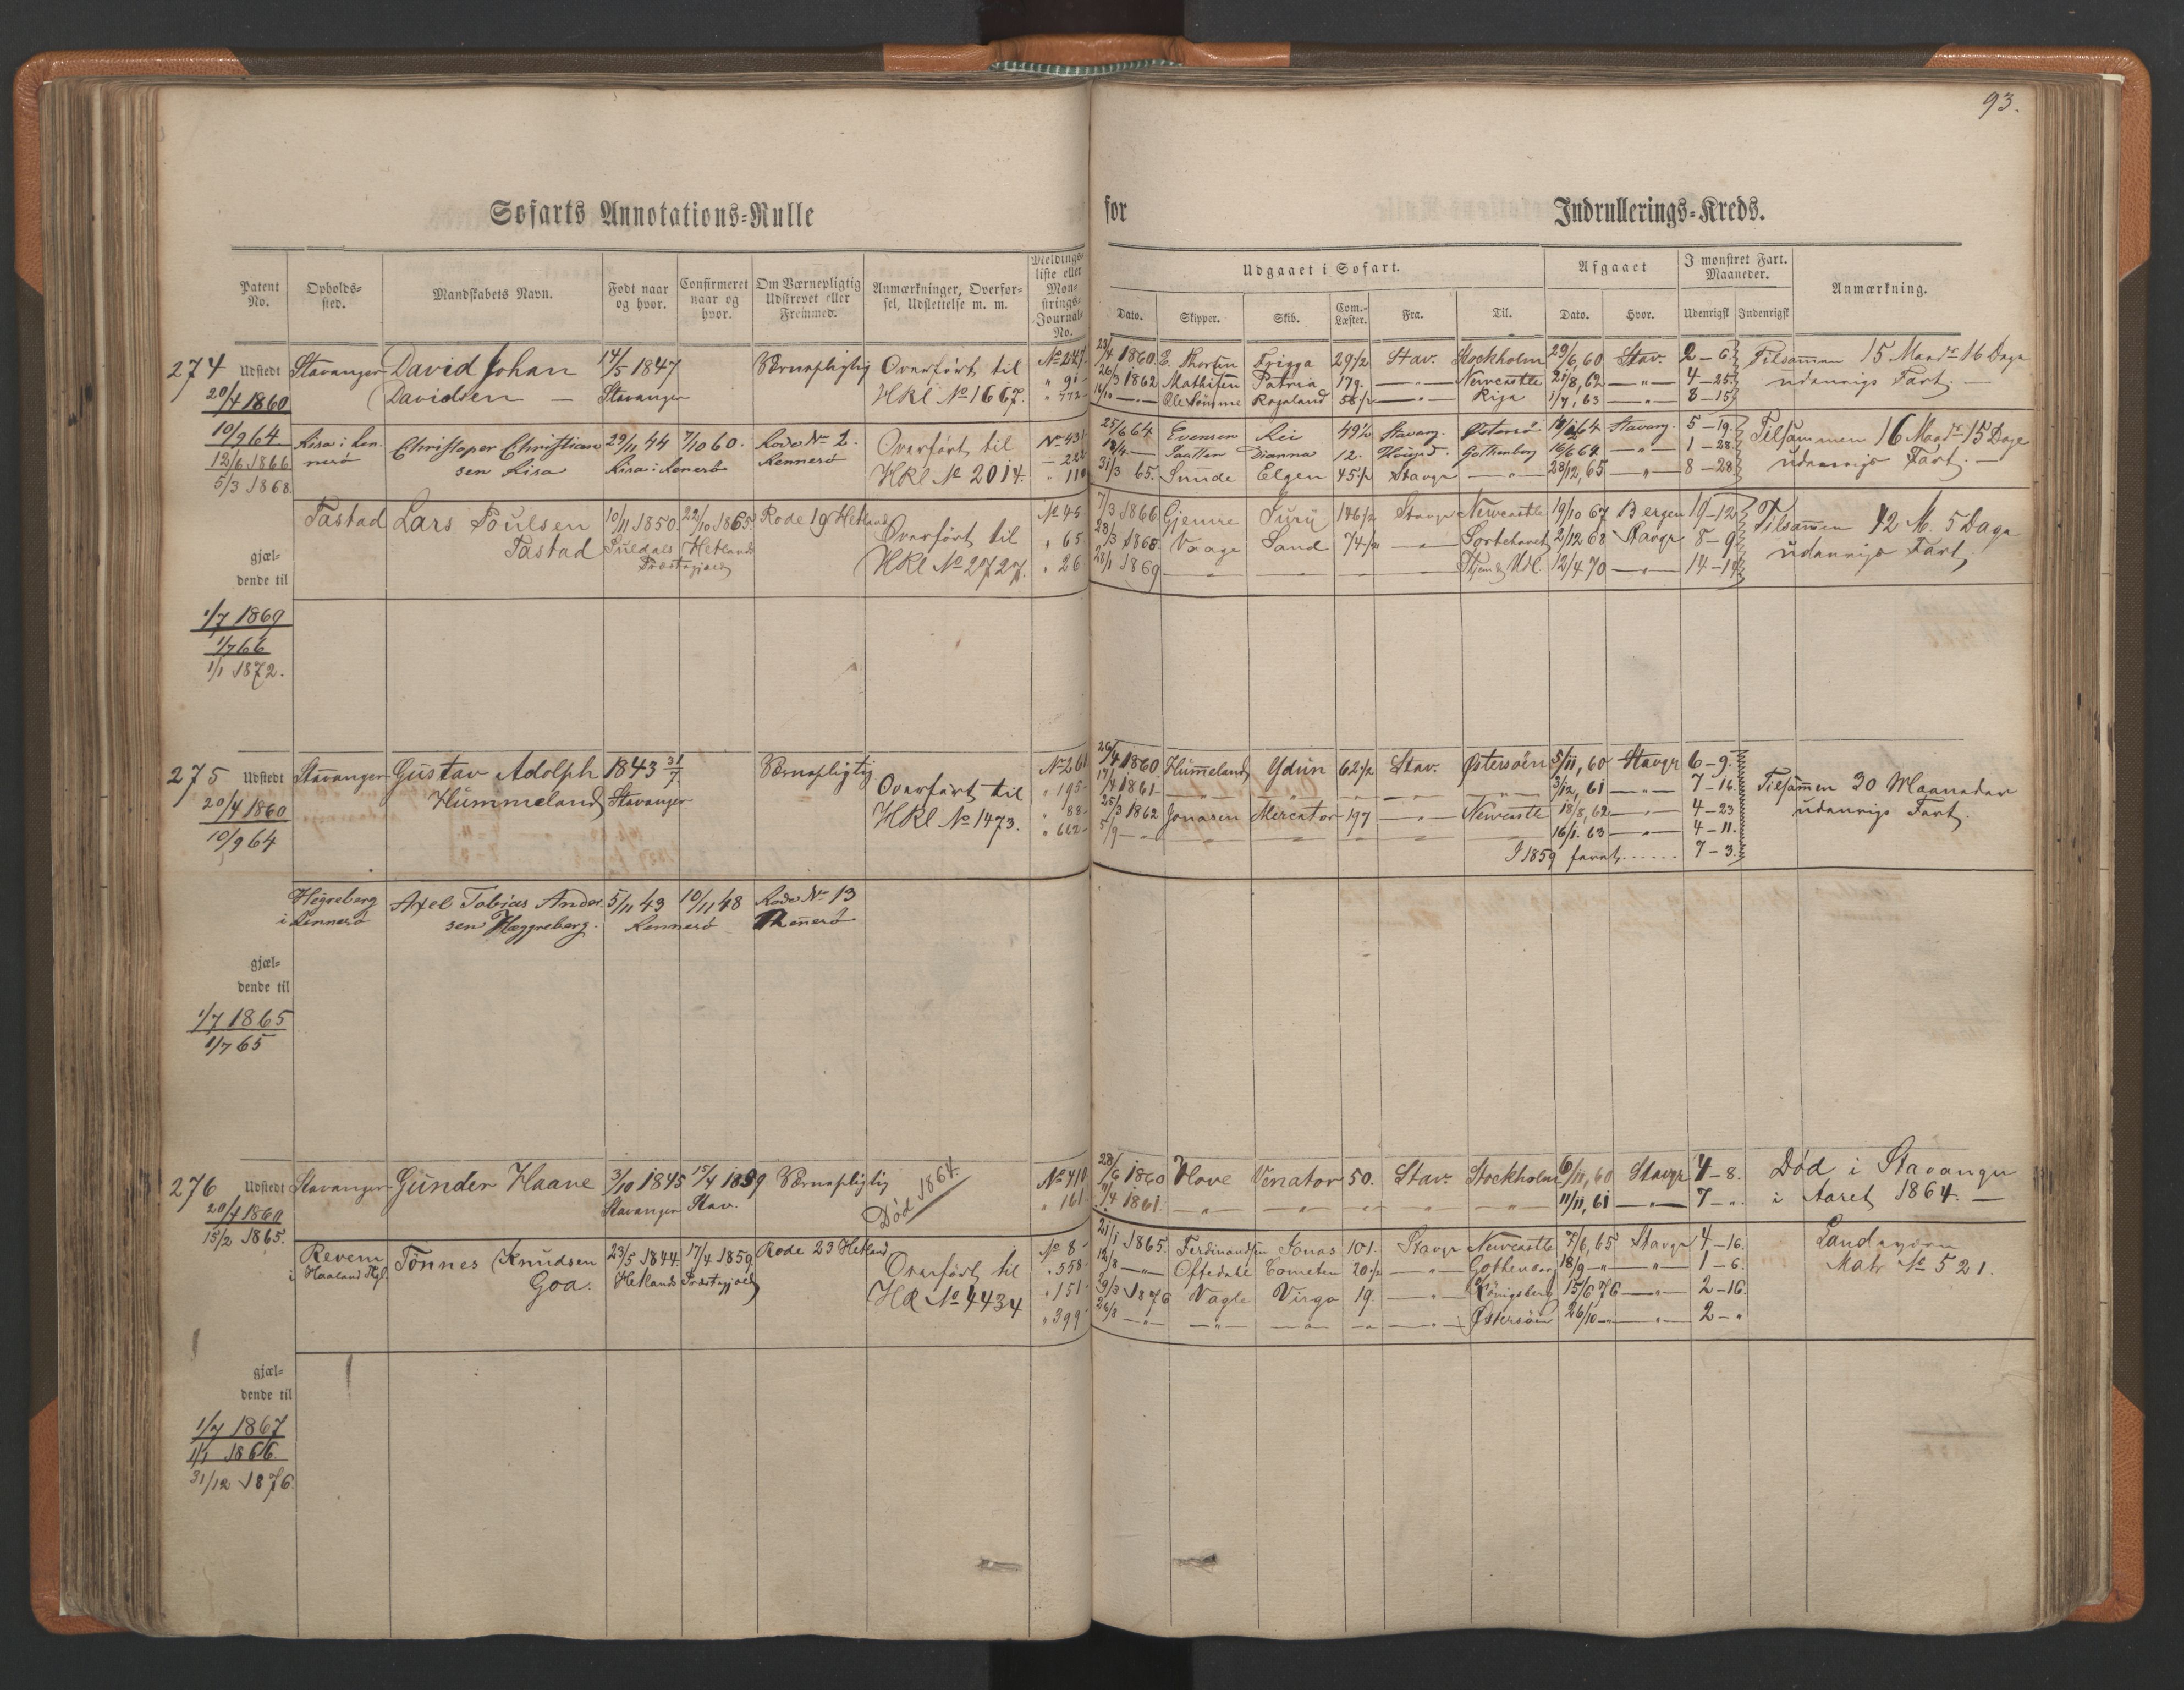 93.
Søfarts Annotations=Rulle for Indrullerings=Kreds.
Patent No. Opholds-sted. Mandskabets Navn. Født naar og hvor. Confirmeret naar og hvor. Om Værnepligtig Udskrevet eller Fremmed. Anmærkninger, Overførsel, Udslettelse m. m. Meldingsliste eller Mønstrings-Journal-No.
Udgaaet i Søfart. Afgaaet I mønstret Fart. Maaneder. Anmærkning.
Dato. Skipper. Skib. Com.-Læster. Fra. Til. Dato. Hvor. Udenrigsk Indenrigsk
274 Udstedt Stavanger David Johan 14/5 1847 Værnepligtig Overført til No 247
20/4 1860 Davidsen — Stavanger HRl No 1667. " 91
" 772
23/4 1860 E. Thorsen Frigga 29 1/2 Stav. Stockholm 29/6, 60 Stav. 2–6 Tilsammen 15 Maadr 16 Dage
26/3 1862 Mathisen Patria 179. —"— Newcastle 21/8, 62 —"— 4–25 udenrigs Fart. —
14/10 —"— Ole Rogaland 58 1/2 —"— Riga 1/7, 63 —"— 8–15
10/9 64 Risa i Ren- Christoper Christian 29/11 44 7/10 60. Rode No 2. Overført til No 431
12/6 1866 nesø sen Risa Risa i Rennesø Rennesø HRl No 2014. — 222
5/3 1868. " 110
25/6 64 Evensen Rei 49 1/2 Stavang. Østersø 64 Stavang. 5–19. Tilsammen 16 Maadr 15 Dage
Saatten Dianna 12. Gothenborg 16/6 64 —"— 1–28 udenrigs Fart. —
31/3 65. Sunde Elgen 45 1/2 Stavgr —"— 28/12, 65 —"— 8–28
Tastad Lars Poulsen 10/11 1850. 22/10 1865 Rode 19 Hetland Overført til No 45
Tastad Suledals Hetlands HRl No 2727. " 65
Præstegjæld " 26
7/3 1866 Gjemre Juru 146 1/2 Stavgr Newcastle 19/10 67 Bergen 19–12 Tilsammen 42 M. 5 Dage
28/3 1868 Vaage Sand 74 1/2 —"— Sortehavet 2/12 68 Stavgr 8–9 udenrigs Fart,
28/1 1869 —"— —"— —"— Udl. 12/4 70 —"— 14–14
gjæl-
dende til
1/7 1869
1/7 66
1/1 1872.
275 Udstedt Stavanger Gustav Adolph 1843 31/7. Værnepligtig Overført til No 261
20/4 1860 Hummeland Stavanger HRl No 1473. " 195
10/9 64 " 88
" 662
26/4 1860 Hummeland Ydun 62 1/2 Stav. Østersøen 5/11, 60 Stavgr 6–9. Tilsammen 30 Maaneder
17/4 1861 —"— —"— —"— —"— —"— 3/12, 61 —"— 7–16. udenrigs Fart.
25/3 1862 Jonasen Mercator 197 —"— Newcastle 18/8, 62 —"— 4–23
5/9 —"— —"— —"— —"— —"— —"— 16/1. 63 —"— 4–11.
I 1859 faret...... 7–3.
Hegreberg Axel Tobias Ander- 5/11 43 10/11 48 Rode No 13
i Rennesø sen Hæggreberg. Rennesø Rennesø
gjæl-
dende til
1/7 1865
1/7 65
276 Udstedt Stavanger Gunder Haave 3/10 1845 15/4 1859 Værnepligtig Død 1864. No 410
20/4 1860 Stavanger Stav. " 161
15/2 1865.
28/6 1860 Hove Venator 50. Stav. Stockholm 6/11, 60 Stavgr 4–8. Død i Stavanger
9/4 1861. —"— —"— —"— —"— —"— 11/11, 61 —"— 7–". i Aaret 1864. —
Revem Tönnes Knudsen 23/5 1844 17/4 1859 Rode 23 Hetland Overført til No 8
i Haaland Goa. Hetlands Præstegjæld HR No 4434 " 558
" 151
" 399
21/1 1865. Ferdinandsen Jonas 101. Stavgr Newcastle 7/6, 65 Stavgr 4–16. Landværn
12/8 —"— Oftedahl Cometen 20 1/2 —"— Gothenborg 18/9 —"— —"— 1–6. Matr No 521.
29/3 1876 Vagle Virgo 19. —"— Königsberg 15/6 76 —"— 2–16.
26/8 —"— —"— —"— —"— —"— Østersøen 26/10 —"— —"— 2–"
gjæl-
dende til
1/7 1867
1/1 1866
31/12 1876.